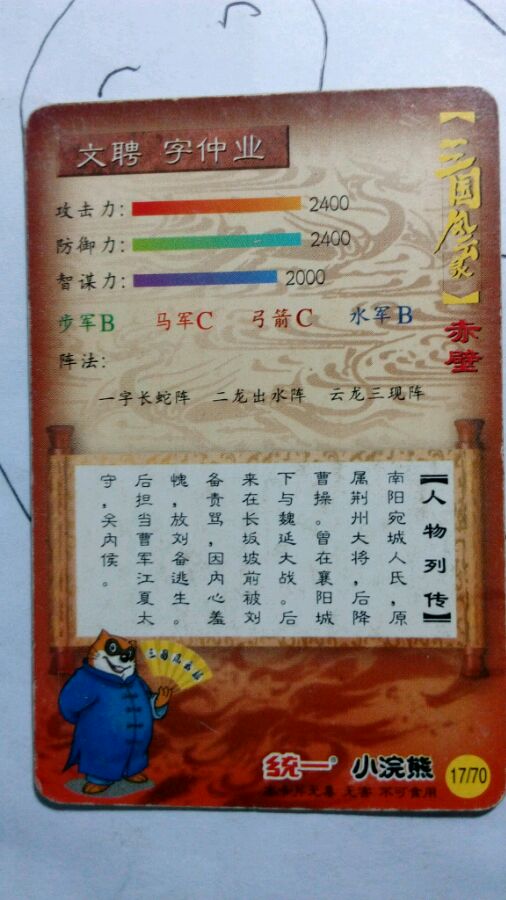 文聘 字仲业
【三国风云】赤壁
攻击力: 2400
防御力: 2400
智谋力: 2000
步军B 马军C 弓箭C 水军B
阵法:
一字长蛇阵 二龙出水阵 云龙三现阵
【人物列传】
南阳宛城人氏,原
属荆州大将,后降
曹操。曾在襄阳城
下与魏延大战。后
来在长坂坡前被刘
备责骂,因内心羞
愧,放刘备逃生。
后担当曹军江夏太
守,关内侯。
统一® 小浣熊
本卡片无毒 无害 不可食用
17/70